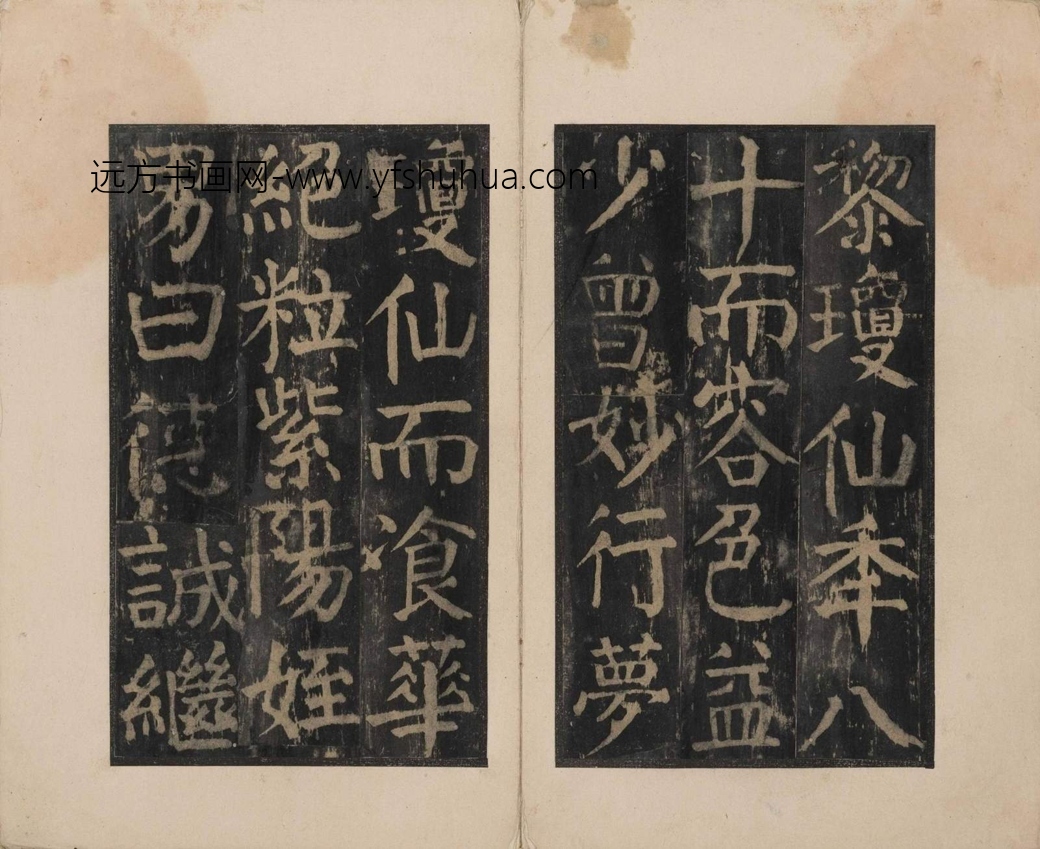 黎瓊仙年八
十而容色益
少曾妙行夢
瓊仙而湌華
絕粒紫陽姪
男曰德誠繼
远方书画网-www.yfshuhua.com